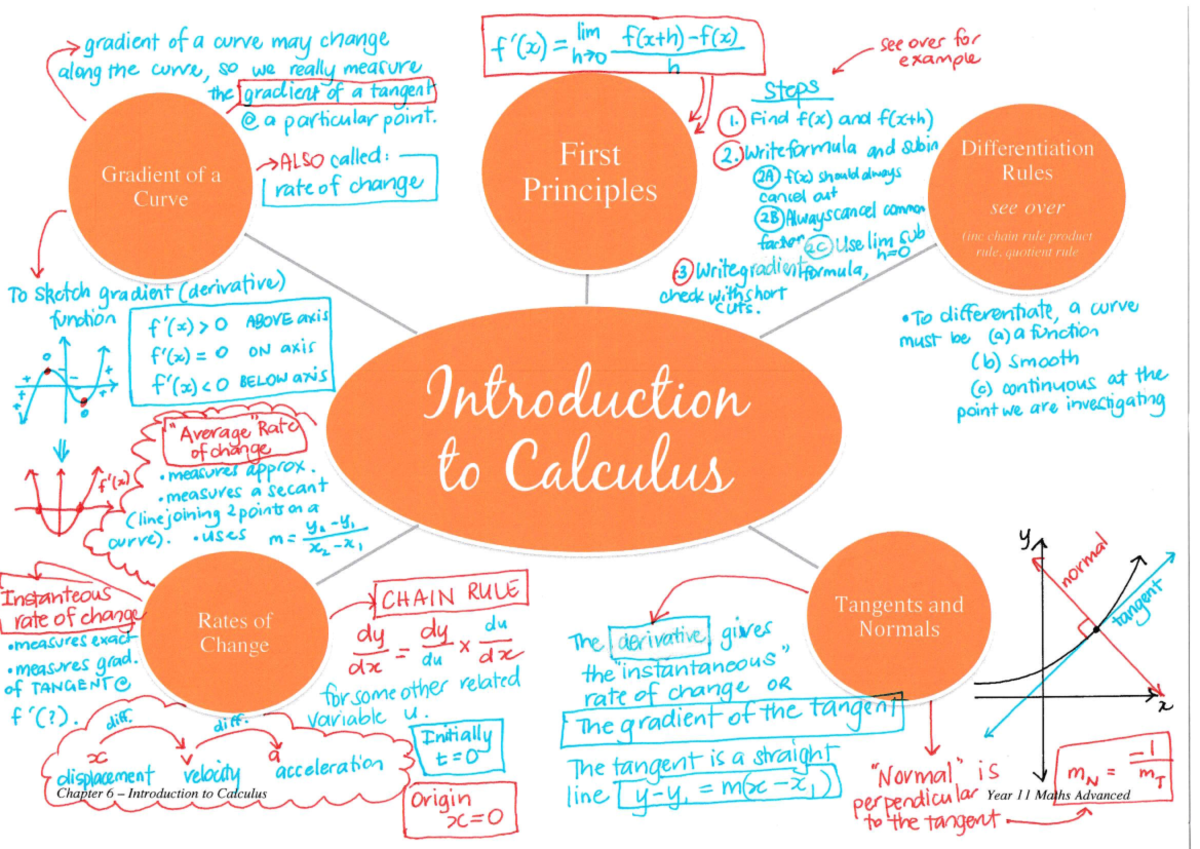 gradient of a curve may change
along the curve, so we really measure
the gradient of a tangent
@ a particular point.
Gradient of a
Curve
→ALSO called:
rate of change
To sketch gradient (derivative)
function
f'(x) > 0 ABOVE axis
f'(x) = 0 ON axis
f'(x) < 0 BELOW axis
f'(x)
f'(x) = lim h→0 f(x+h)-f(x) / h
First
Principles
see over for
example
Steps
1. Find f(x) and f(x+h)
2. Write formula and sub in
2A f(x) should always
cancel out
2B Always cancel common
factor 2C Use lim sub
h=0
3 Write gradient formula,
check with short
cuts.
Differentiation
Rules
see over
(inc chain rule product
rule, quotient rule
•To differentiate, a curve
must be (a) a function
(b) smooth
(c) continuous at the
point we are investigating
Introduction
to Calculus
"Average" Rate
of change
•measures approx.
•measures a secant
(line joining 2 points on a
curve). •uses m = y₂-y₁ / x₂-x₁
Instanteous
rate of change
•measures exact
•measures grad.
of TANGENT @
f'(?).
Rates of
Change
CHAIN RULE
dy/dx = dy/du × du/dx
for some other related
variable u.
diff. diff.
x v a
displacement velocity acceleration
Initially
t=0
Origin
x=0
Chapter 6 – Introduction to Calculus
Tangents and
Normals
The derivative gives
the "instantaneous"
rate of change OR
The gradient of the tangent
The tangent is a straight
line y-y₁ = m(x-x₁)
"Normal" is
perpendicular
to the tangent
y
normal
tangent
x
m_N = -1/m_T
Year 11 Maths Advanced